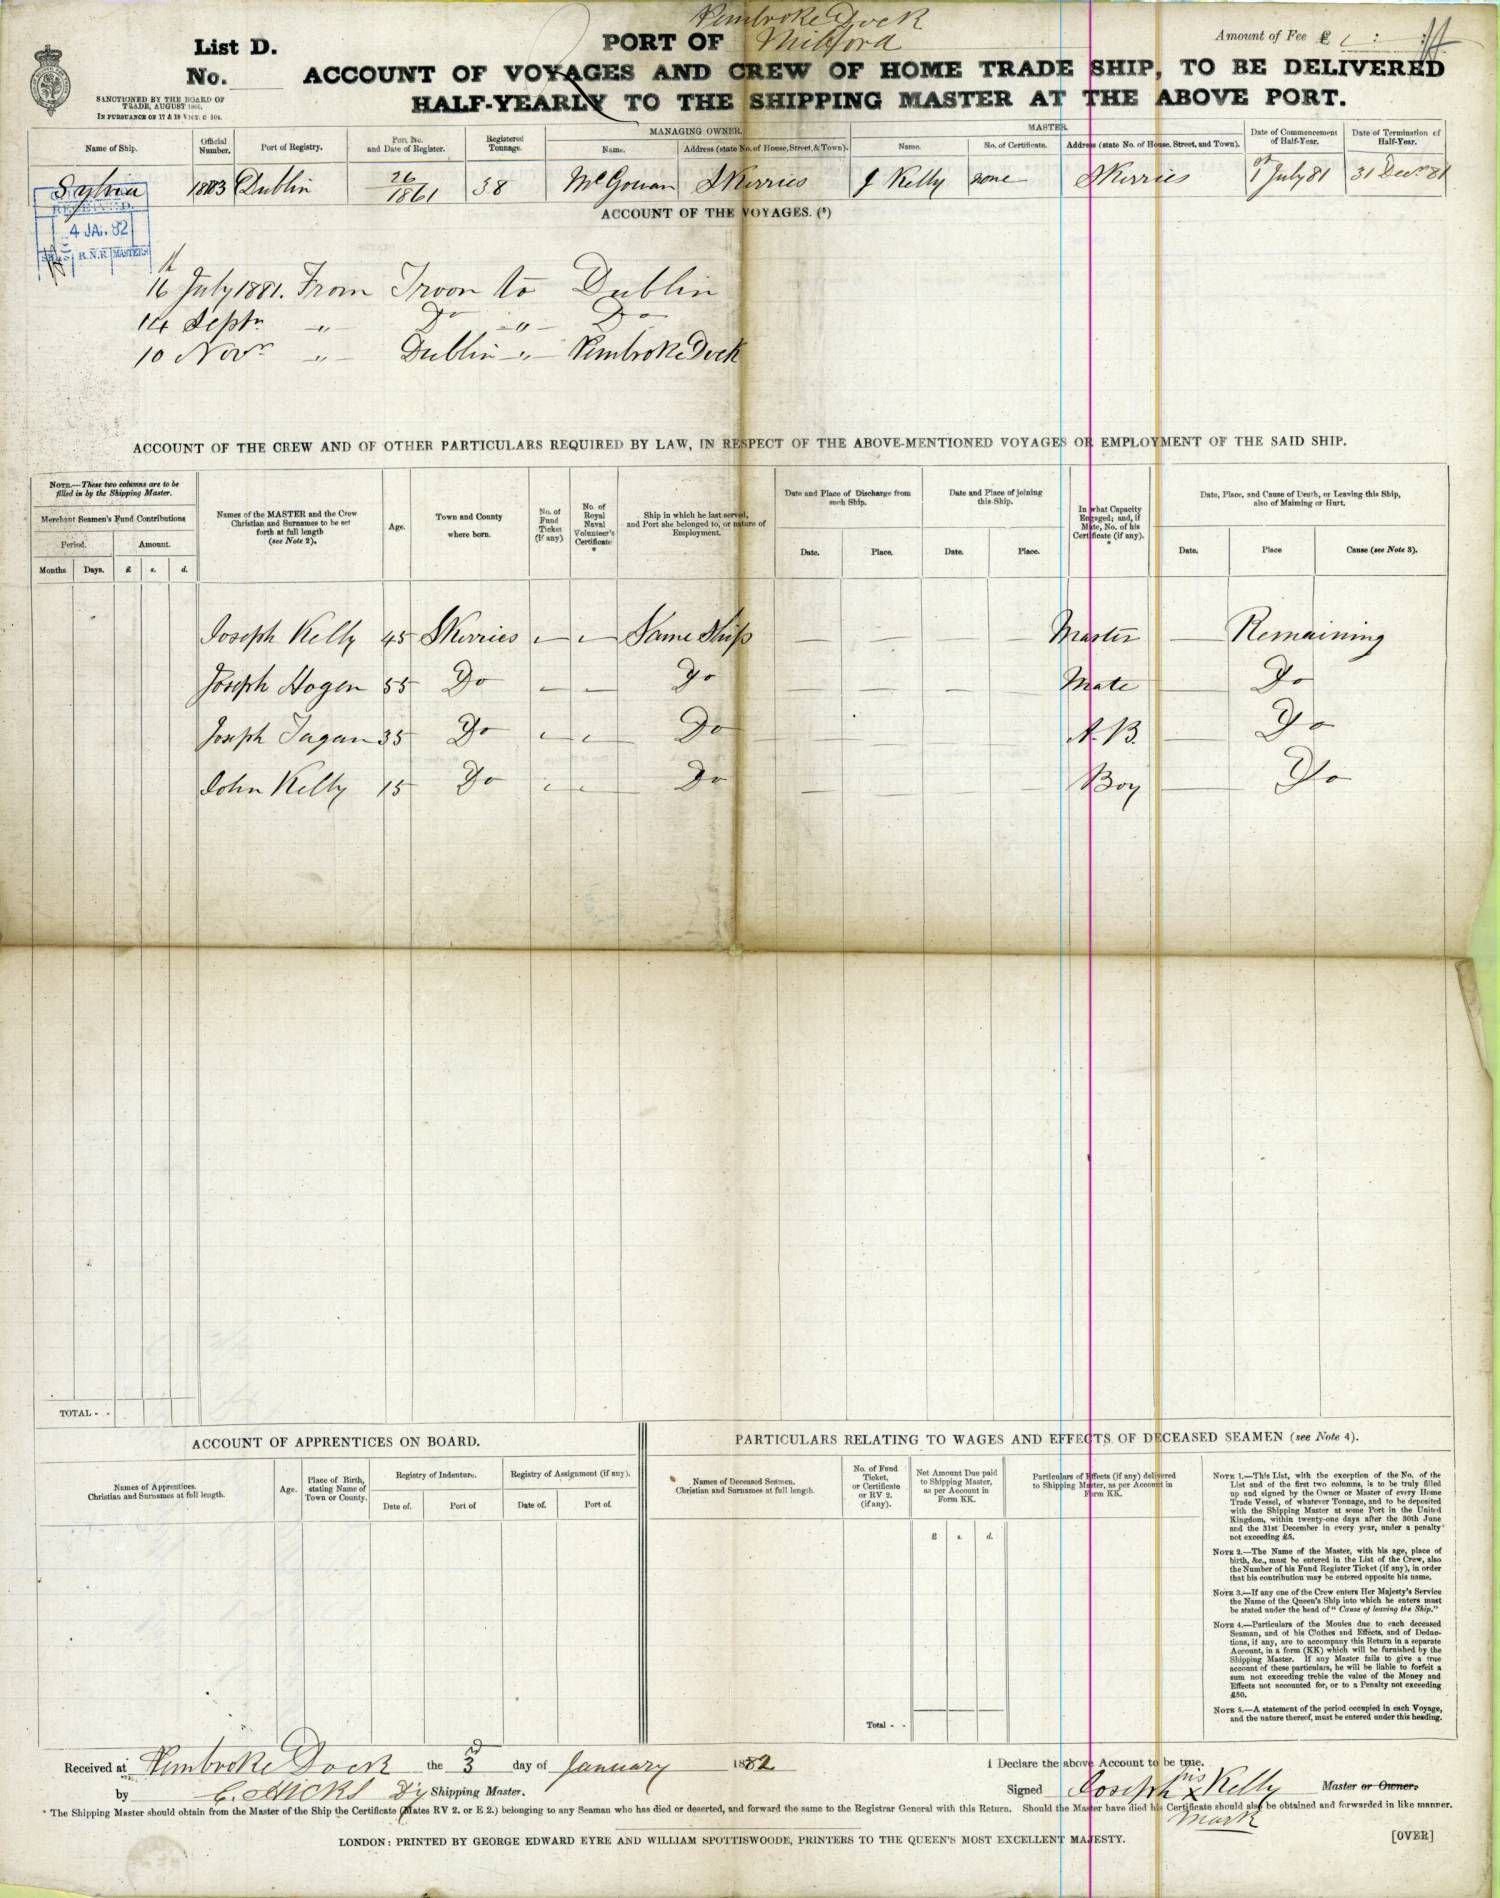 Pembroke Dock
List D.
PORT OF Milford
Amount of Fee £
No.
ACCOUNT OF VOYAGES AND CREW OF HOME TRADE SHIP, TO BE DELIVERED
HALF-YEARLY TO THE SHIPPING MASTER AT THE ABOVE PORT.
SANCTIONED BY THE BOARD OF
TRADE, AUGUST
IN PURSUANCE OF 17 & 18 VICT. C 104.
Name of Ship. Official Number. Port of Registry. Port No. and Date of Register. Registered Tonnage. MANAGING OWNER. Name. Address (state No. of House, Street, & Town). MASTER. Name. No. of Certificate. Address (state No. of House, Street, and Town). Date of Commencement of Half-Year. Date of Termination of Half-Year.
Sylvia Dublin 26/1861 38 McGowan Skerries J Kelly none Skerries 1st July 81 31 Decr 81
RECEIVED
4 JAN. 82
R.N.R MASTERS
ACCOUNT OF THE VOYAGES. (5)
16th July 1881. From Troon to Dublin
14 Septr " Do " Do
10 Novr " Dublin " Pembroke Dock
ACCOUNT OF THE CREW AND OF OTHER PARTICULARS REQUIRED BY LAW, IN RESPECT OF THE ABOVE-MENTIONED VOYAGES OR EMPLOYMENT OF THE SAID SHIP.
NOTE.—These two columns are to be
filled in by the Shipping Master.
Merchant Seamen's Fund Contributions
Period. Amount.
Months Days. £ s. d.
Names of the MASTER and the Crew
Christian and Surnames to be set
forth at full length
(see Note 2).
Age.
Town and County
where born.
No. of
Fund
Ticket
(if any)
No. of
Royal
Naval
Volunteer's
Certificate
*
Ship in which he last served,
and Port she belonged to, or nature of
Employment.
Date and Place of Discharge from
such Ship.
Date. Place.
Date and Place of joining
this Ship.
Date. Place.
In what Capacity
Engaged; and, if
Mate, No. of his
Certificate (if any).
*
Date, Place, and Cause of Death, or Leaving this Ship,
also of Maiming or Hurt.
Date. Place Cause (see Note 3).
Joseph Kelly 45 Skerries — — Same Ship — — — — Master — Remaining
Joseph Hogen 55 Do — — Do — — — — Mate — Do
Joseph 35 Do — — Do — — — — A.B. — Do
John Kelly 15 Do — — Do — — — — Boy — Do
TOTAL - -
ACCOUNT OF APPRENTICES ON BOARD.
Names of Apprentices.
Christian and Surnames at full length.
Age.
Place of Birth,
stating Name of
Town or County.
Registry of Indenture.
Date of. Port of
Registry of Assignment (if any).
Date of. Port of.
PARTICULARS RELATING TO WAGES AND EFFECTS OF DECEASED SEAMEN (see Note 4).
Names of Deceased Seamen.
Christian and Surnames at full length.
No. of Fund
Ticket,
or Certificate
or RV 2.
(if any).
Net Amount Due paid
to Shipping Master,
as per Account in
Form KK.
£ s. d.
Particulars of Effects (if any) delivered
to Shipping Master, as per Account in
Form KK.
Total - -
NOTE 1.—This List, with the exception of the No. of the
List and of the first two columns, is to be truly filled
up and signed by the Owner or Master of every Home
Trade Vessel, of whatever Tonnage, and to be deposited
with the Shipping Master at some Port in the United
Kingdom, within twenty-one days after the 30th June
and the 31st December in every year, under a penalty
not exceeding £5.
NOTE 2.—The Name of the Master, with his age, place of
birth, &c., must be entered in the List of the Crew, also
the Number of his Fund Register Ticket (if any), in order
that his contribution may be entered opposite his name.
NOTE 3.—If any one of the Crew enters Her Majesty's Service
the Name of the Queen's Ship into which he enters must
be stated under the head of "Cause of leaving the Ship."
NOTE 4.—Particulars of the Monies due to each deceased
Seaman, and of his Clothes and Effects, and of Deduc-
tions, if any, are to accompany this Return in a separate
Account, in a form (KK) which will be furnished by the
Shipping Master. If any Master fails to give a true
account of these particulars, he will be liable to forfeit a
sum not exceeding treble the value of the Money and
Effects not accounted for, or to a Penalty not exceeding
£50.
NOTE 5.—A statement of the period occupied in each Voyage,
and the nature thereof, must be entered under this heading.
Received at Pembroke Dock the 3rd day of January 1882
by C. HICKS Dy Shipping Master.
I Declare the above Account to be true.
Signed Joseph his x mark Kelly Master or Owner.
* The Shipping Master should obtain from the Master of the Ship the Certificate (Mates RV 2. or E 2.) belonging to any Seaman who has died or deserted, and forward the same to the Registrar General with this Return. Should the Master have died his Certificate should also be obtained and forwarded in like manner.
LONDON: PRINTED BY GEORGE EDWARD EYRE AND WILLIAM SPOTTISWOODE, PRINTERS TO THE QUEEN'S MOST EXCELLENT MAJESTY.
[OVER]